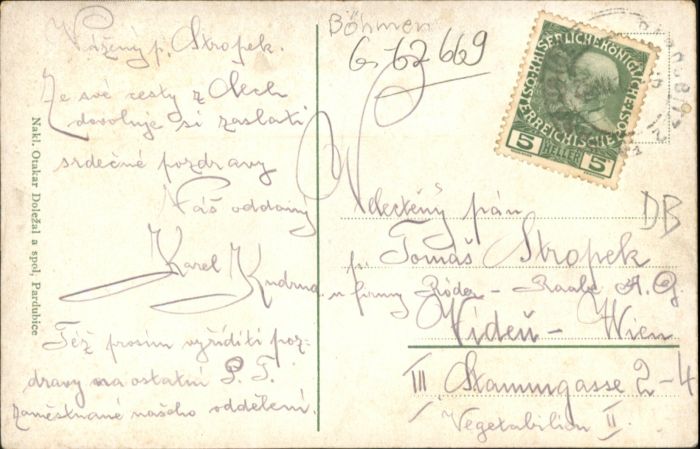 Vážený p. Stropek.
Ze své cesty z Čech
dovoluje si zaslati
srdečné pozdravy
Váš oddaný
Karel Kudrna
Též prosím vyříditi poz-
dravy na ostatní P. T.
zaměstnané našeho oddělení.
Nakl. Otakar Doležal a spol, Pardubice
Böhmen
6-62669
K.K. ÖSTERREICHISCHE
KAISERLICHEKÖNIGLICHE
5 HELLER 5
DB
Velectěný pán
p. Tomáš Stropek
u firmy Röder - Raabe A. G.
Vídeň - Wien
III Stammgasse 2-4
Vegetabilien II.